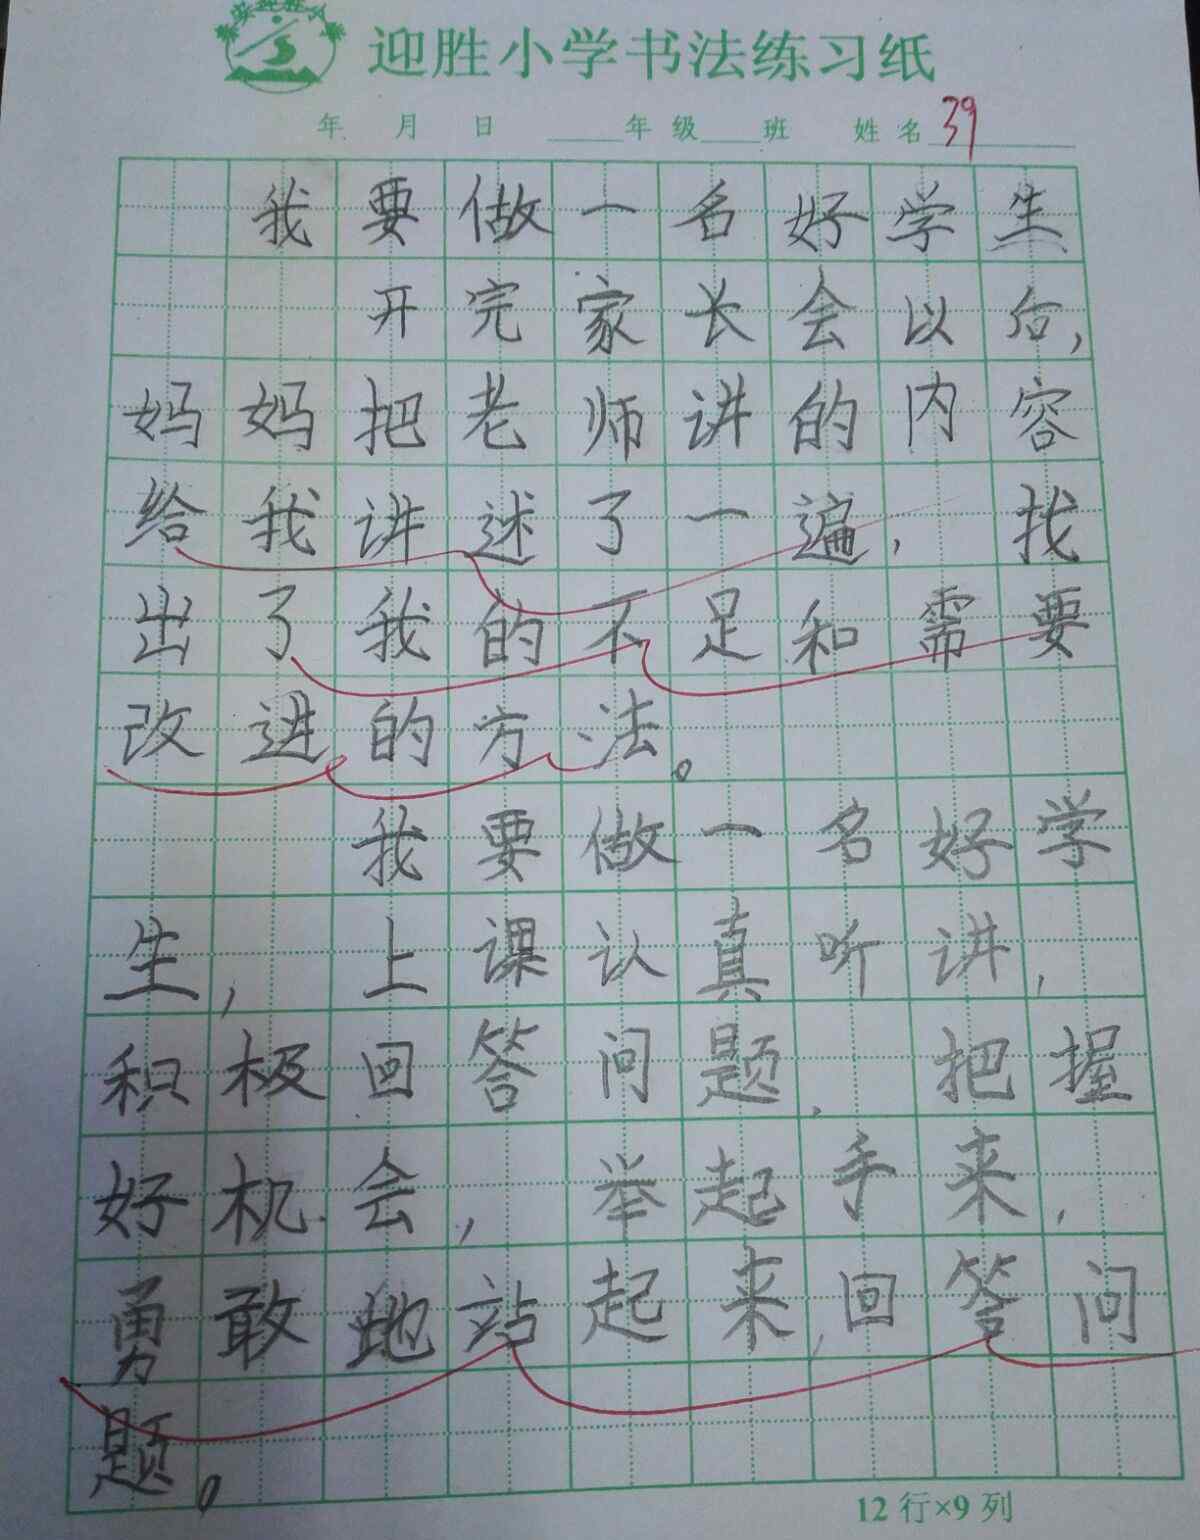 迎胜小学书法练习纸
年 月 日 ____年级____班 姓名 39
我要做一名好学生
开完家长会以后，
妈妈把老师讲的内容
给我讲述了一遍，找
出了我的不足和需要
改进的方法。
我要做一名好学
生，上课认真听讲，
积极回答问题，把握
好机会，举起手来，
勇敢地站起来，回答问
题。
12行×9列